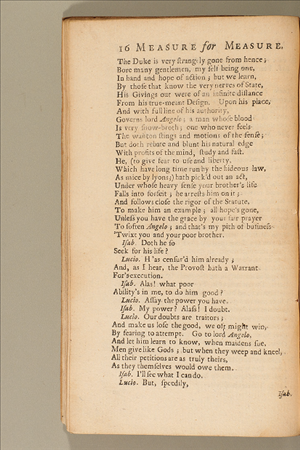 16 MEASURE for MEASURE.
The Duke is very strangely gone from hence;
Bore many gentlemen, my self being one,
In hand and hope of action; but we learn,
By those that know the very nerves of State,
His Givings out were of an infinite distance
From his true-meant Design. Upon his place,
And with full line of his authority,
Governs lord Angelo; a man whose blood
Is very snow-broth; one who never feels
The wanton stings and motions of the sense;
But doth rebate and blunt his natural edge
With profits of the mind, study and fast.
He, (to give fear to use and liberty,
Which have long time run by the hideous law,
As mice by lyons;) hath pick'd out an act,
Under whose heavy sense your brother's life
Falls into forfeit; he arrests him on it;
And follows close the rigor of the Statute,
To make him an example; all hope's gone,
Unless you have the grace by your fair prayer
To soften Angelo; and that's my pith of business
'Twixt you and your poor brother.
Isab. Doth he so
Seek for his life?
Lucio. H'as censur'd him already;
And, as I hear, the Provost hath a Warrant
For's execution.
Isab. Alas! what poor
Ability's in me, to do him good?
Lucio. Assay the power you have.
Isab. My power? Alas! I doubt.
Lucio. Our doubts are traitors;
And make us lose the good, we oft might win,
By fearing to attempt. Go to lord Angelo,
And let him learn to know, when maidens sue,
Men give like Gods; but when they weep and kneel,
All their petitions are as truly theirs,
As they themselves would owe them.
Isab. I'll see what I can do.
Lucio. But, speedily,
Isab.